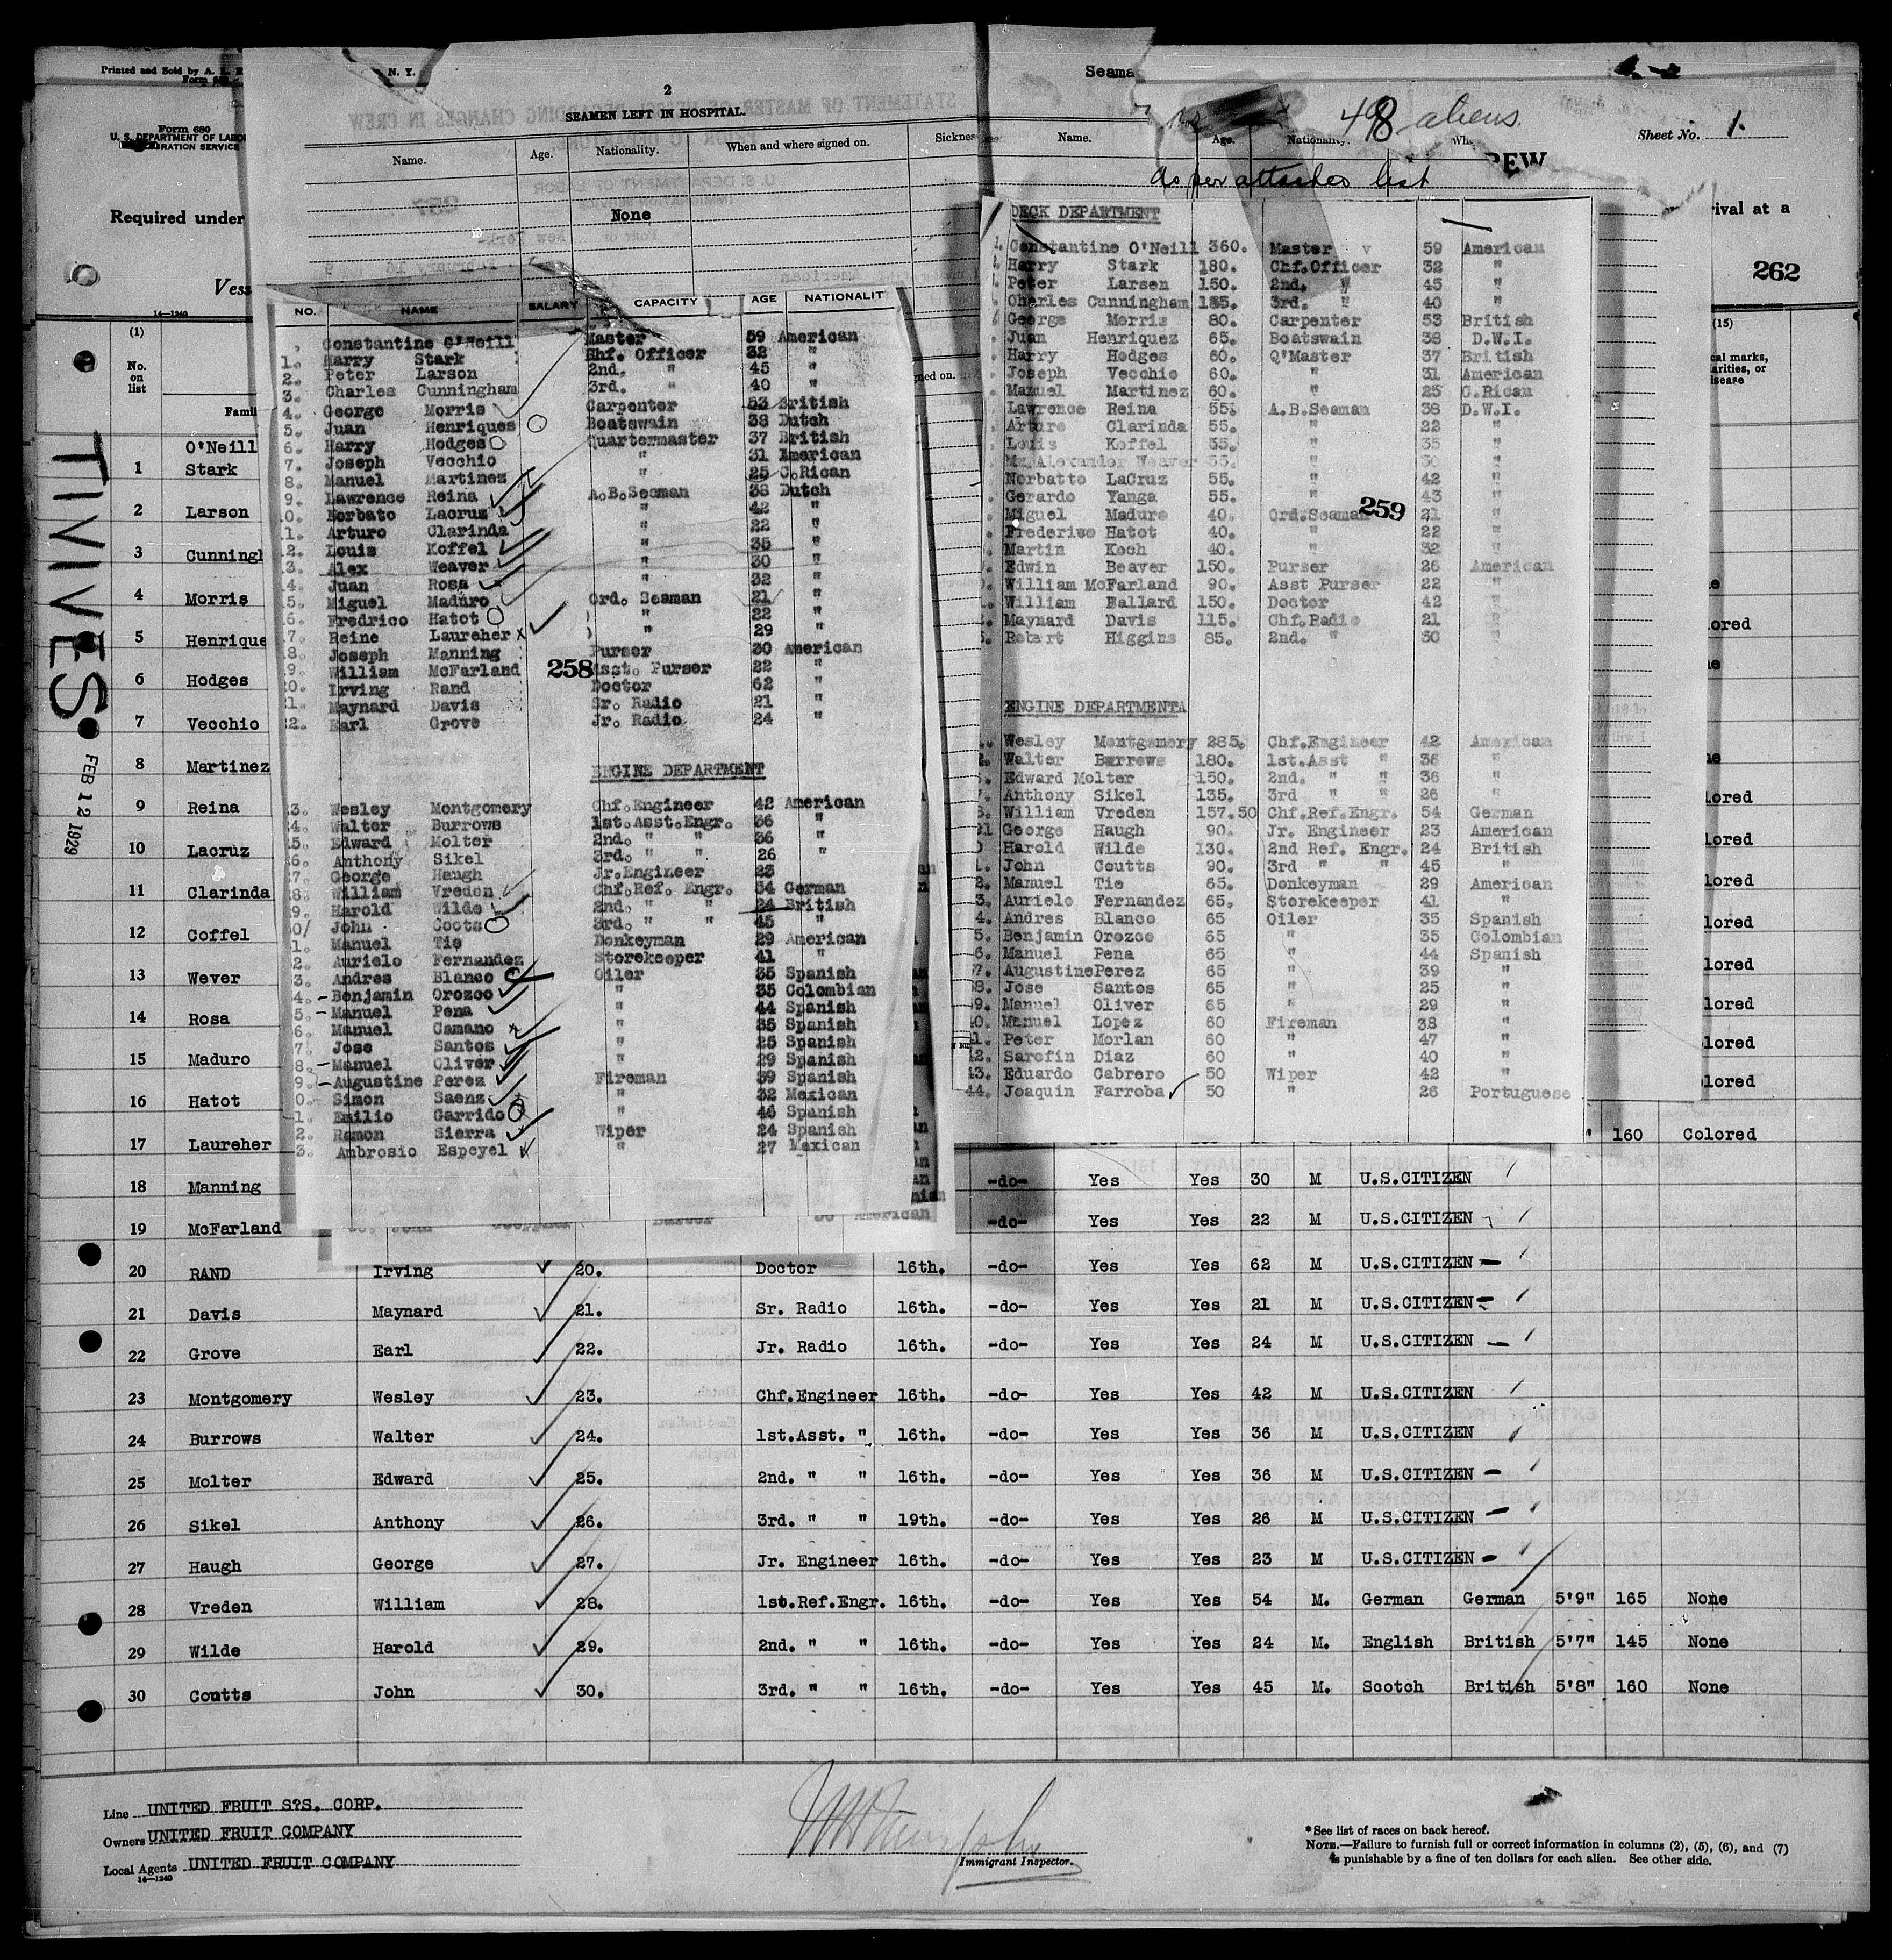 Printed and Sold by A.
N. Y.
Form 680
U. S. DEPARTMENT OF LABOR
IMMIGRATION SERVICE
Required under
Vess
14—1240
(1)
No. on list
Famil
TIVIVES
FEB 12 1929
2
SEAMEN LEFT IN HOSPITAL.
Name. Age. Nationality. When and where signed on. Sicknes
None
NO. NAME SALARY CAPACITY AGE NATIONALIT
Constantine O'Neill Master 59 American
1. Harry Stark Chf. Officer 32 "
2. Peter Larson 2nd. " 45 "
3. Charles Cunningham 3rd. " 40 "
4. George Morris Carpenter 53 British
5. Juan Henriques Boatswain 38 Dutch
6. Harry Hodges Quartermaster 37 British
7. Joseph Vecchio " 31 American
8. Manuel Martinez " 25 C.Rican
9. Lawrence Reina A.B.Seaman 38 Dutch
0. Norbato Lacruz " 42 "
1. Arturo Clarinda " 22 "
2. Louis Koffel " 35 "
3. Alex Weaver " 30 "
4. Juan Rosa " 32 "
5. Miguel Maduro Ord. Seaman 21 "
6. Fredrico Hatot " 22 "
7. Reine Laureher x " 29 "
8. Joseph Manning Purser 30 American
9. William McFarland 258 Asst. Purser 22 "
20. Irving Rand Doctor 62 "
21. Maynard Davis Sr. Radio 21 "
22. Earl Grove Jr. Radio 24 "
ENGINE DEPARTMENT
23. Wesley Montgomery Chf.Engineer 42 American
24. Walter Burrows 1st.Asst.Engr. 36 "
5. Edward Molter 2nd. " " 36 "
26. Anthony Sikel 3rd. " " 26 "
27. George Haugh Jr.Engineer 23
28. William Vreden Chf.Ref. Engr. 54 German
29. Harold Wilde 2nd. " " 24 British
30/ John Coots 3rd. " " 45 "
1. Manuel Tie Donkeyman 29 American
2. Aurielo Fernandez Storekeeper 41 "
3. Andres Blanco Oiler 35 Spanish
4. Benjamin Orozco " 35 Colombian
5. Manuel Pena " 44 Spanish
6. Manuel Camano " 35 Spanish
7. Jose Santos " 25 Spanish
8. Manuel Oliver " 29 Spanish
9. Augustine Perez Fireman 39 Spanish
0. Simon Saenz " 32 Mexican
1. Emilio Garrido " 46 Spanish
2. Ramon Sierra Wiper 24 Spanish
3. Ambrosio Espeyel " 27 Mexican
Seama
498 aliens.
Sheet No. 1.
Name. Age. Nationality. Wh
REW
as per attached list
rival at a
262
(15)
DECK DEPARTMENT
Constantine O'Neill 360. Master 59 American
Harry Stark 180. Chf.Officer 32 "
Peter Larsen 150. 2nd. " 45 "
Charles Cunningham 135. 3rd. " 40 "
George Morris 80. Carpenter 53 British
Juan Henriquez 65. Boatswain 38 D.W.I.
Harry Hodges 60. Q'Master 37 British
Joseph Vecchio 60. " 31 American
Manuel Martinez 60. " 25 C.Rican
Lawrence Reina 55. A.B.Seaman 38 D.W.I.
Arturo Clarinda 55. " 22 "
Louis Koffel 55. " 35 "
Alexander Weaver 55. " 30 "
Norbatto LaCruz 55. " 42 "
Gerardo Yanga 55. " 43 "
Miguel Madure 40. Ord.Seaman 259 21 "
Frederiwo Hatot 40. " 22 "
Martin Koch 40. " 32 "
Edwin Beaver 150. Purser 26 American
William McFarland 90. Asst Purser 22 "
William Ballard 150. Doctor 42 "
Maynard Davis 115. Chf.Radio 21 "
Robert Higgins 85. 2nd. " 30 "
ENGINE DEPARTMENTA
Wesley Montgomery 285. Chf.Engineer 42 American
Walter Burrows 180. 1st.Asst " 36 "
Edward Molter 150. 2nd. " " 36 "
Anthony Sikel 135. 3rd " " 26 "
William Vreden 157.50 Chf.Ref.Engr. 54 German
George Haugh 90. Jr. Engineer 23 American
Harold Wilde 130. 2nd Ref. Engr. 24 British
1. John Coutts 90. 3rd " " 45 "
2. Manuel Tie 65. Donkeyman 29 American
3. Aurielo Fernandez 65. Storekeeper 41 "
4. Andres Blanco 65 Oiler 35 Spanish
5. Benjamin Orozco 65 " 35 Colombian
6. Manuel Pena 65 " 44 Spanish
7. Augustine Perez 65 " 39 "
8. Jose Santos 65 " 25 "
9. Manuel Oliver 65 " 29 "
0. Manuel Lopez 60 Fireman 38 "
1. Peter Morlan 60 " 47 "
42. Sarefin Diaz 60 " 40 "
43. Eduardo Cabrero 50 Wiper 42 "
44. Joaquin Farroba 50 " 26 Portuguese
O'Neill
1 Stark
2 Larson
3 Cunningh
4 Morris
5 Henrique
6 Hodges
7 Vecchio
8 Martinez
9 Reina
10 Lacruz
11 Clarinda
12 Coffel
13 Wever
14 Rosa
15 Maduro
16 Hatot
17 Laureher 160 Colored
18 Manning -do- Yes Yes 30 M U.S.CITIZEN
19 McFarland -do- Yes Yes 22 M U.S.CITIZEN
20 RAND Irving 20. Doctor 16th. -do- Yes Yes 62 M U.S.CITIZEN
21 Davis Maynard 21. Sr. Radio 16th. -do- Yes Yes 21 M U.S.CITIZEN
22 Grove Earl 22. Jr. Radio 16th. -do- Yes Yes 24 M U.S.CITIZEN
23 Montgomery Wesley 23. Chf.Engineer 16th. -do- Yes Yes 42 M U.S.CITIZEN
24 Burrows Walter 24. 1st.Asst. " 16th. -do- Yes Yes 36 M U.S.CITIZEN
25 Molter Edward 25. 2nd. " " 16th. -do- Yes Yes 36 M U.S.CITIZEN
26 Sikel Anthony 26. 3rd. " " 19th. -do- Yes Yes 26 M U.S.CITIZEN
27 Haugh George 27. Jr. Engineer 16th. -do- Yes Yes 23 M U.S.CITIZEN
28 Vreden William 28. 1st.Ref.Engr. 16th. -do- Yes Yes 54 M. German German 5'9" 165 None
29 Wilde Harold 29. 2nd. " " 16th. -do- Yes Yes 24 M. English British 5'7" 145 None
30 Coutts John 30. 3rd. " " 16th. -do- Yes Yes 45 M. Scotch British 5'8" 160 None
Line UNITED FRUIT S?S. CORP.
Owners UNITED FRUIT COMPANY
Local Agents UNITED FRUIT COMPANY
14—1240
Immigrant Inspector.
* See list of races on back hereof.
NOTE.—Failure to furnish full or correct information in columns (2), (5), (6), and (7)
is punishable by a fine of ten dollars for each alien. See other side.